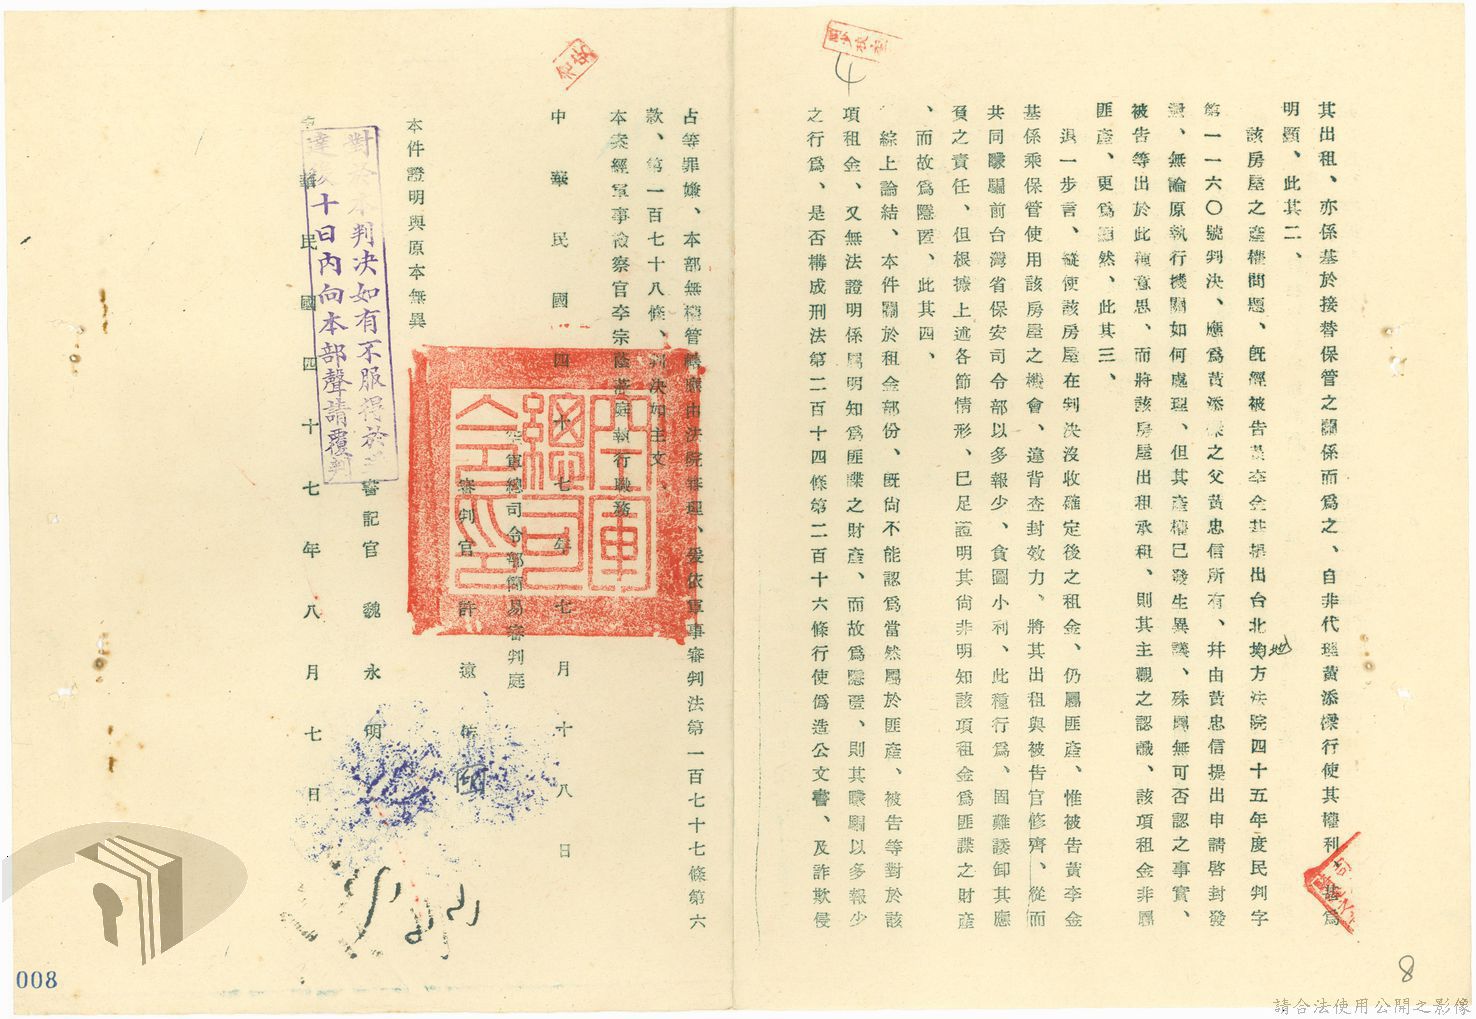 其出租、亦係基於接替保管之關係而爲之、自非代理黃添樑行使其權利、基爲
明顯、此其二、
該房屋之產權問題、既經被告黃李金基提出台北地方法院四十五年度民判字
第一一六〇號判決、應爲黃添樑之父黃忠信所有、幷由黃忠信提出申請啓封發
還、無論原執行機關如何處理、但其產權已發生異議、殊無可否認之事實、
被告等出於此種意思、而將該房屋出租承租、則其主觀之認識、該項租金非屬
匪產、更爲顯然、此其三、
退一步言、縱使該房屋在判決沒收確定後之租金、仍屬匪產、惟被告黃李金
基係乘保管使用該房屋之機會、違背查封效力、將其出租與被告官修齊、從而
共同矇騙前台灣省保安司令部以多報少、貪圖小利、此種行爲、固難諉卸其應
負之責任、但根據上述各節情形、已足證明其尚非明知該項租金爲匪諜之財產
、而故爲隱匿、此其四、
綜上論結、本件關於租金部份、既尙不能認爲當然屬於匪產、被告等對於該
項租金、又無法證明係屬明知爲匪諜之財產、而故爲隱匿、則其矇騙以多報少
之行爲、是否構成刑法第二百十四條第二百十六條行使僞造公文書、及詐欺侵
占等罪嫌、本部無權管轄應由法院審理、爰依軍事審判法第一百七十七條第六
款、第一百七十八條、判決如主文、
本案經軍事檢察官李宗蔭蒞庭執行職務
中華民國四十七年七月十八日
空軍總司令部簡易審判庭
審判官許遠
本件證明與原本無異
書記官魏永明
中華民國四十七年八月七日
對於本判決如有不服得於送
達後十日內向本部聲請覆判
空軍總司令印
4
8
008
請合法使用公開之影像